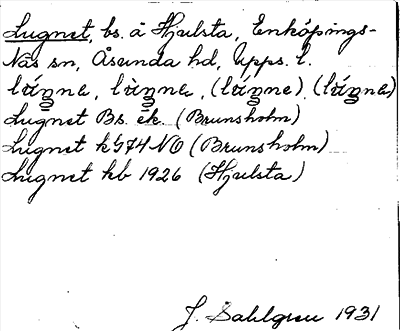 Lugnet, bs. å Hjulsta, Enköpings-
Näs sn, Åsunda hd, Upps. l.
Lugnet Bs. ek. (Brunsholm)
Lugnet k 574 NO (Brunsholm)
Lugnet kb 1926 (Hjulsta)
J. Sahlgren 1931